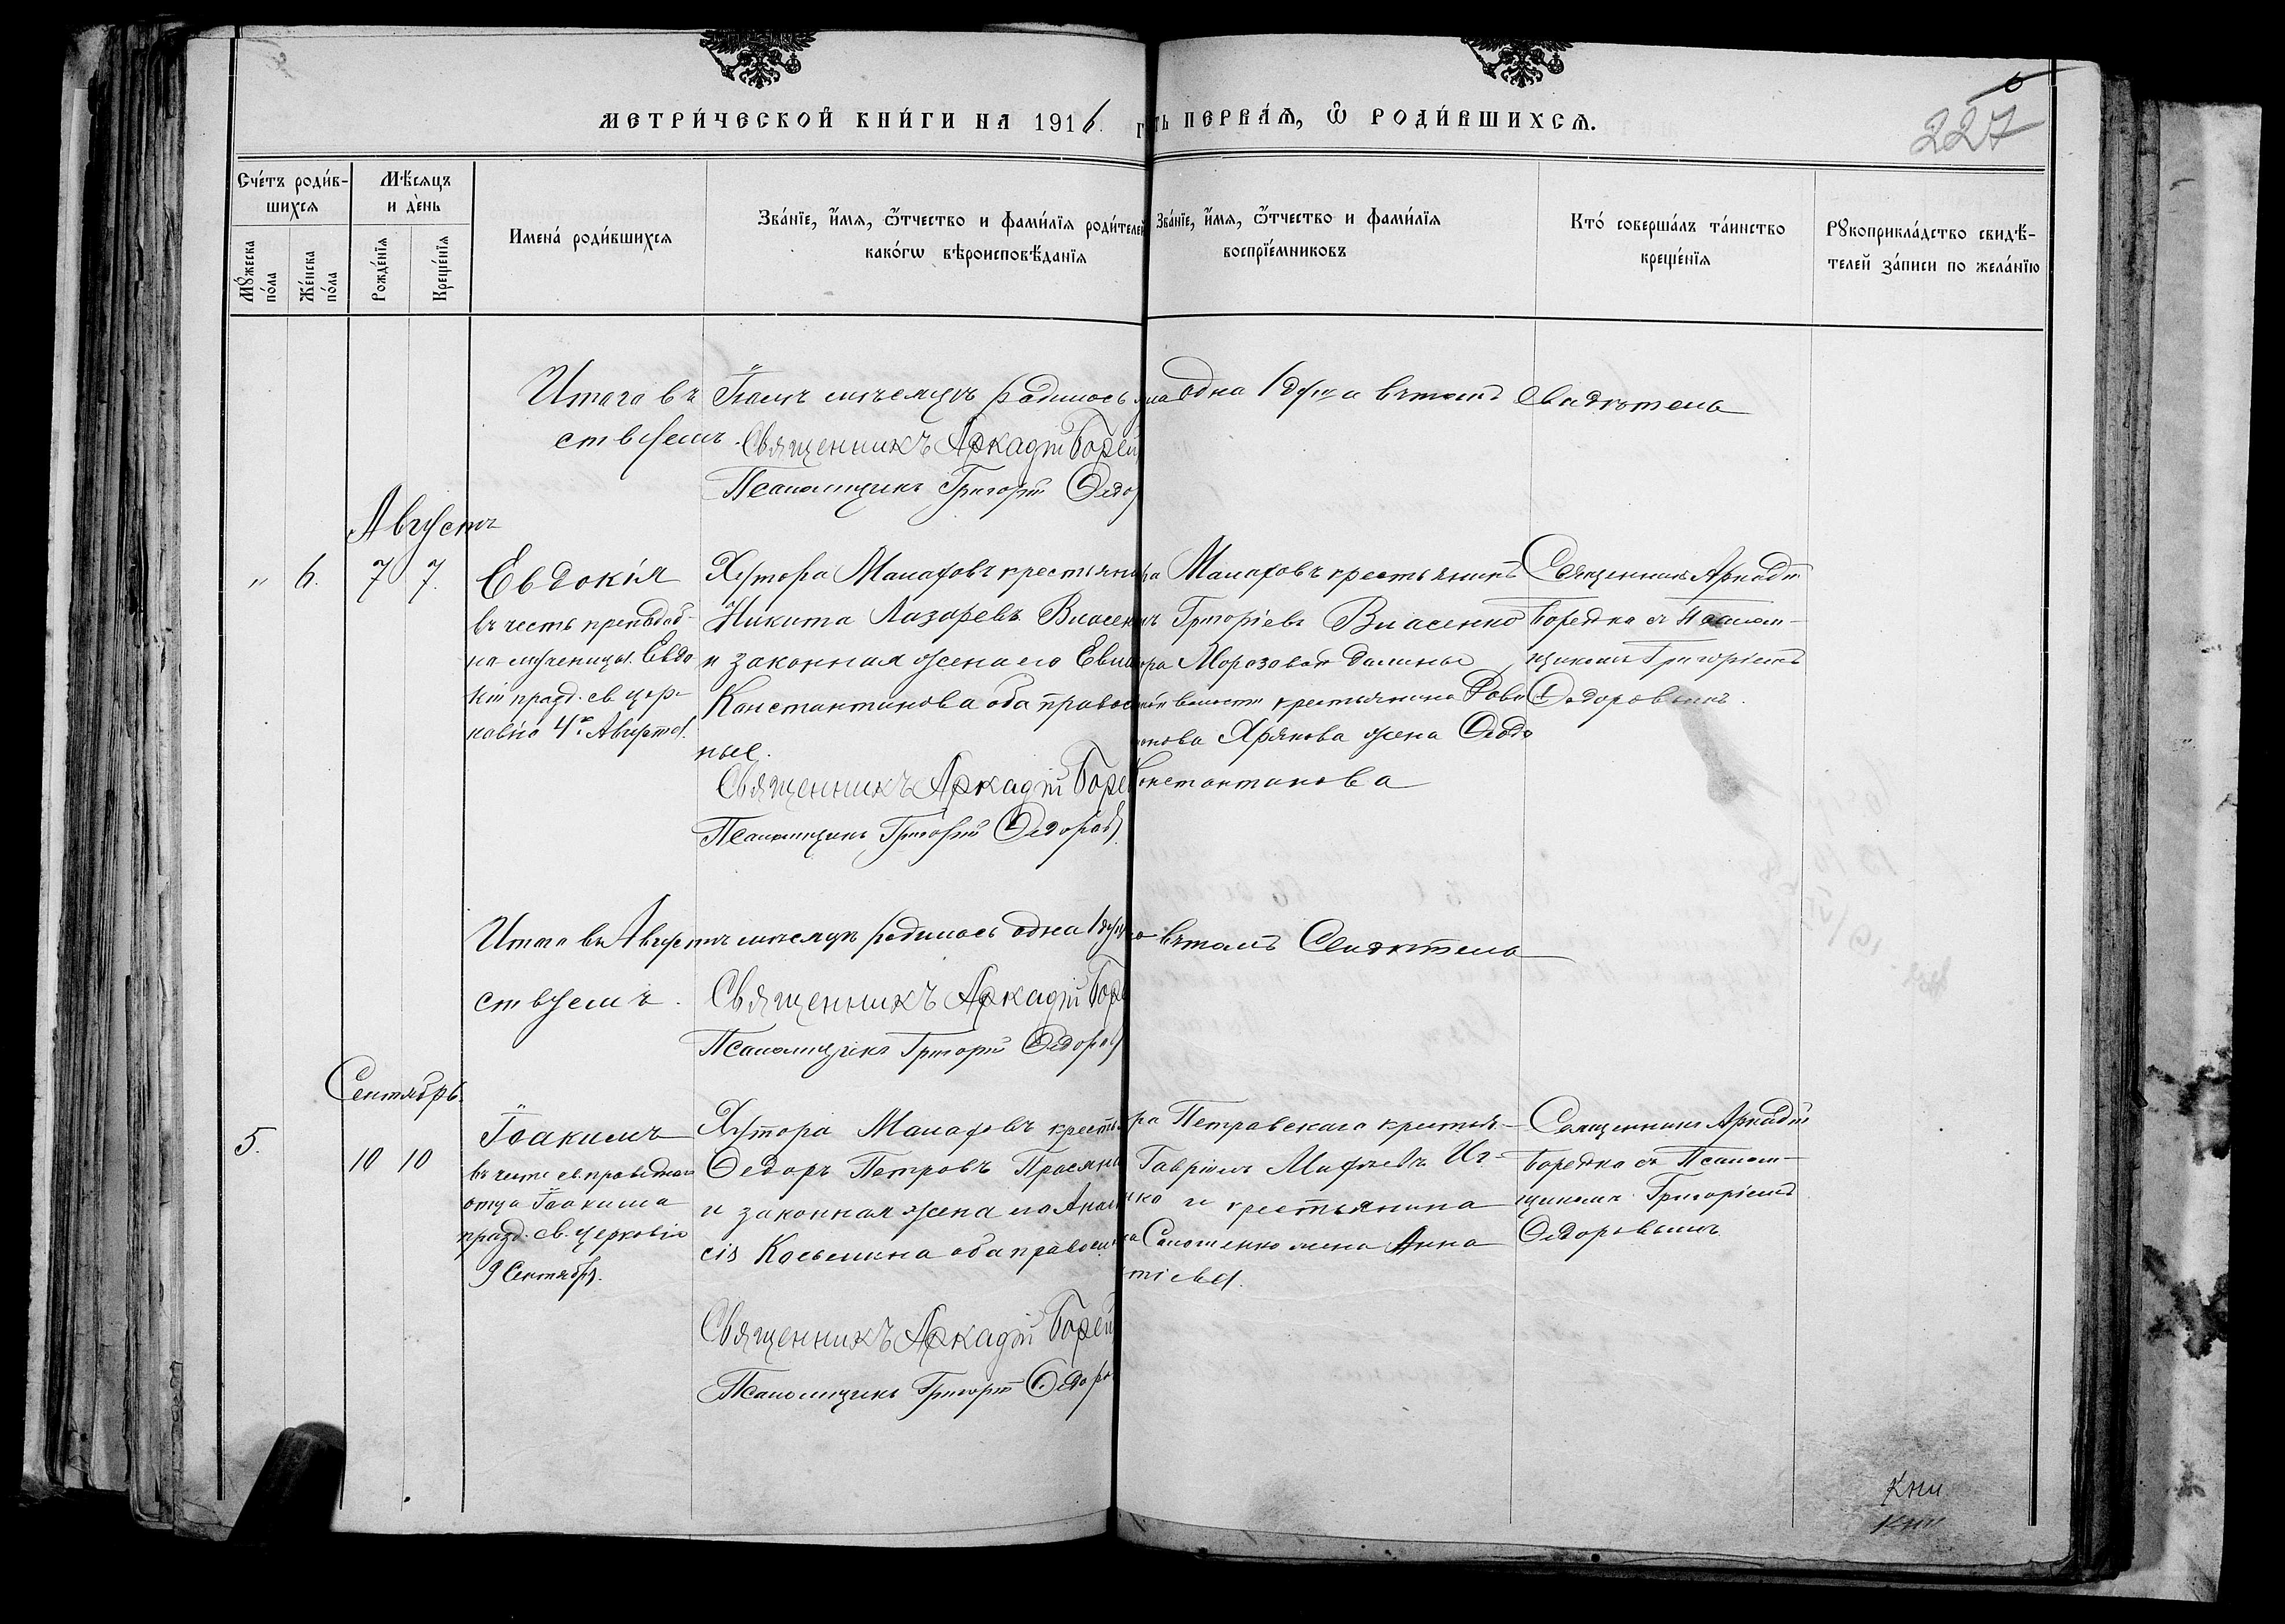 МЕТРИ́ЧЕСКОЙ КНИ́ГИ НА 1916 г
ть ПЕРВА́Я, Ѡ РОДИ́ВШИХСЯ.
6
227
Сче́тъ роди́в-
шихся
Мѣ́сяцъ
и де́нь
Мꙋ́жеска по́ла
Же́нска по́ла
Рожде́нїя
Креще́нїя
Имена́ роди́вшихся
Зва́нїе, и́мя, ѻ́тчество и фами́лїя роди́телей
како́гѡ вѣроисповѣ́данїя
Зва́нїе, и́мя, ѻ́тчество и фами́лїя
воспрїе́мниковъ
Кто́ соверша́лъ та́инство
креще́нїя
Рꙋкоприкла́дство свидѣ́-
телей за́писи по жела́нїю
Итого въ Іюлѣ мѣсяцѣ родилось
одна 1 душа въ томъ свидѣтель
ствуемъ. Священникъ Аркадій Борей
Псаломщикъ Григорій Ѳедо
Августъ
" 6. 7 7. Евдокія
въ честь преподоб-
но-мученицы Евдо
кіи празд. св. цер-
ковію 4го Августа.
Хутора Малаховъ крестьяни
Никита Лазаревъ Власен
и законная жена его Евдо
Константинова оба правос
ные.
Священникъ Аркадій Боре
Псаломщикъ Григорій Ѳедоров
ра Малаховъ крестьянинъ
Григоріевъ Власенко
ра Морозовой долины
волости крестьянина
нова жена Ѳеодо
Константинова
Священникъ Аркадій
Борейко съ Псалом-
щикомъ Григоріемъ
Ѳедоровымъ.
Итого въ Августѣ мѣсяцѣ родилось одна 1 душа въ томъ Свидѣтель
ствуемъ. Священникъ Аркадій Боре
Псаломщикъ Григорій Ѳедоров
Сентябрь.
5. 10 10 Іоакимъ
въ честь св. праведнаго
отца Іоакима
празд. св. церковію
9 Сентября.
Хутора Малаховъ кресть
Ѳедоръ Петровъ
и законная жена его Анас
сія Косьмина оба правосл
Священникъ Аркадій Борей
Псаломщикъ Григорій Ѳедоро
ра Петровскаго крестья-
Гавріилъ Иг-
нко и крестьянина
жена Анна
тіева.
Священникъ Аркадій
Борейко съ Псалом-
щикомъ Григоріемъ
Ѳедоровымъ
Кни
Кни